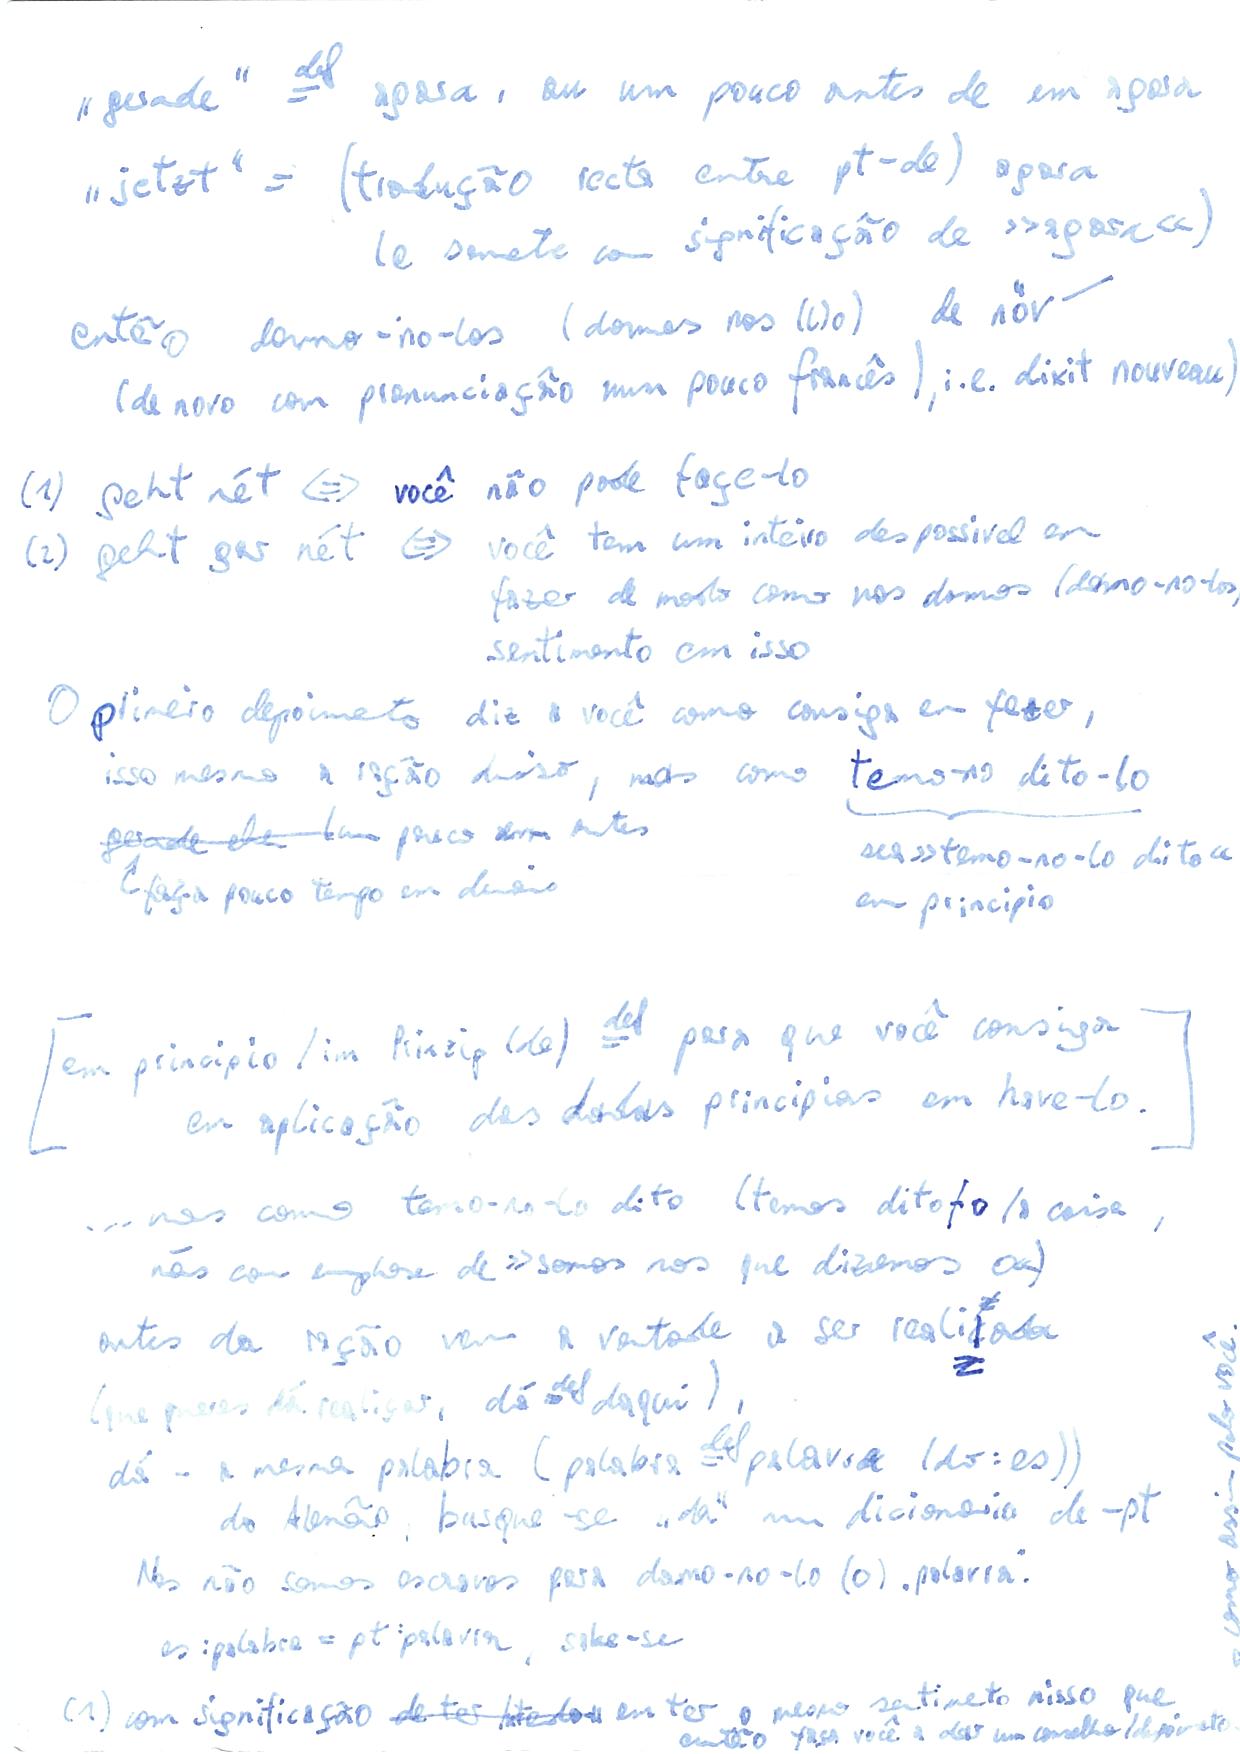 „gerade“ =def agora, ou um pouco antes de em agora
„jetzt“ = (tradução recta entre pt-de) agora
(e somete com significação de »agora«)
então damo-no-los (damos nos (l)o) de növ
(de novo com pronunciação num pouco francês), i.e. dixit nouveau)
(1) geht nét <=> você não pode façe-lo
(2) geht gar nét <=> você tem um inteiro despossivel em
fazer de modo como nos damos (damo-no-los,
sentimento em isso
O primeiro depoimeto diz a você como consiga em fazer,
isso mesmo a ração disso, mas como temo-no dito-lo
pouco antes
faça pouco tempo em
seu »temo-no-lo dito«
em principio
[em principio / im Prinzip (de) =def para que você consiga
em aplicação das dadas principias em have-lo.]
... mas como temo-no-lo dito (temos dito o / a coisa,
não com emphase de »somos nos que dizemos o«)
antes da ração vem a vontade a ser realizada
z
(que queres dá realiçar, dá =def daqui),
dá - a mesma palabra (palabra =def palavra (de:es))
do Alemão, busque-se „da“ um dicionario de-pt
Nos não somos escravos para damo-no-lo (o) „palavra“.
es:palabra = pt:palavra, sabe-se
(1) com significação de ter em ter o mesmo sentimeto nisso que
então faça você a dar um conselho/depoimeto
= como assim pelo você.